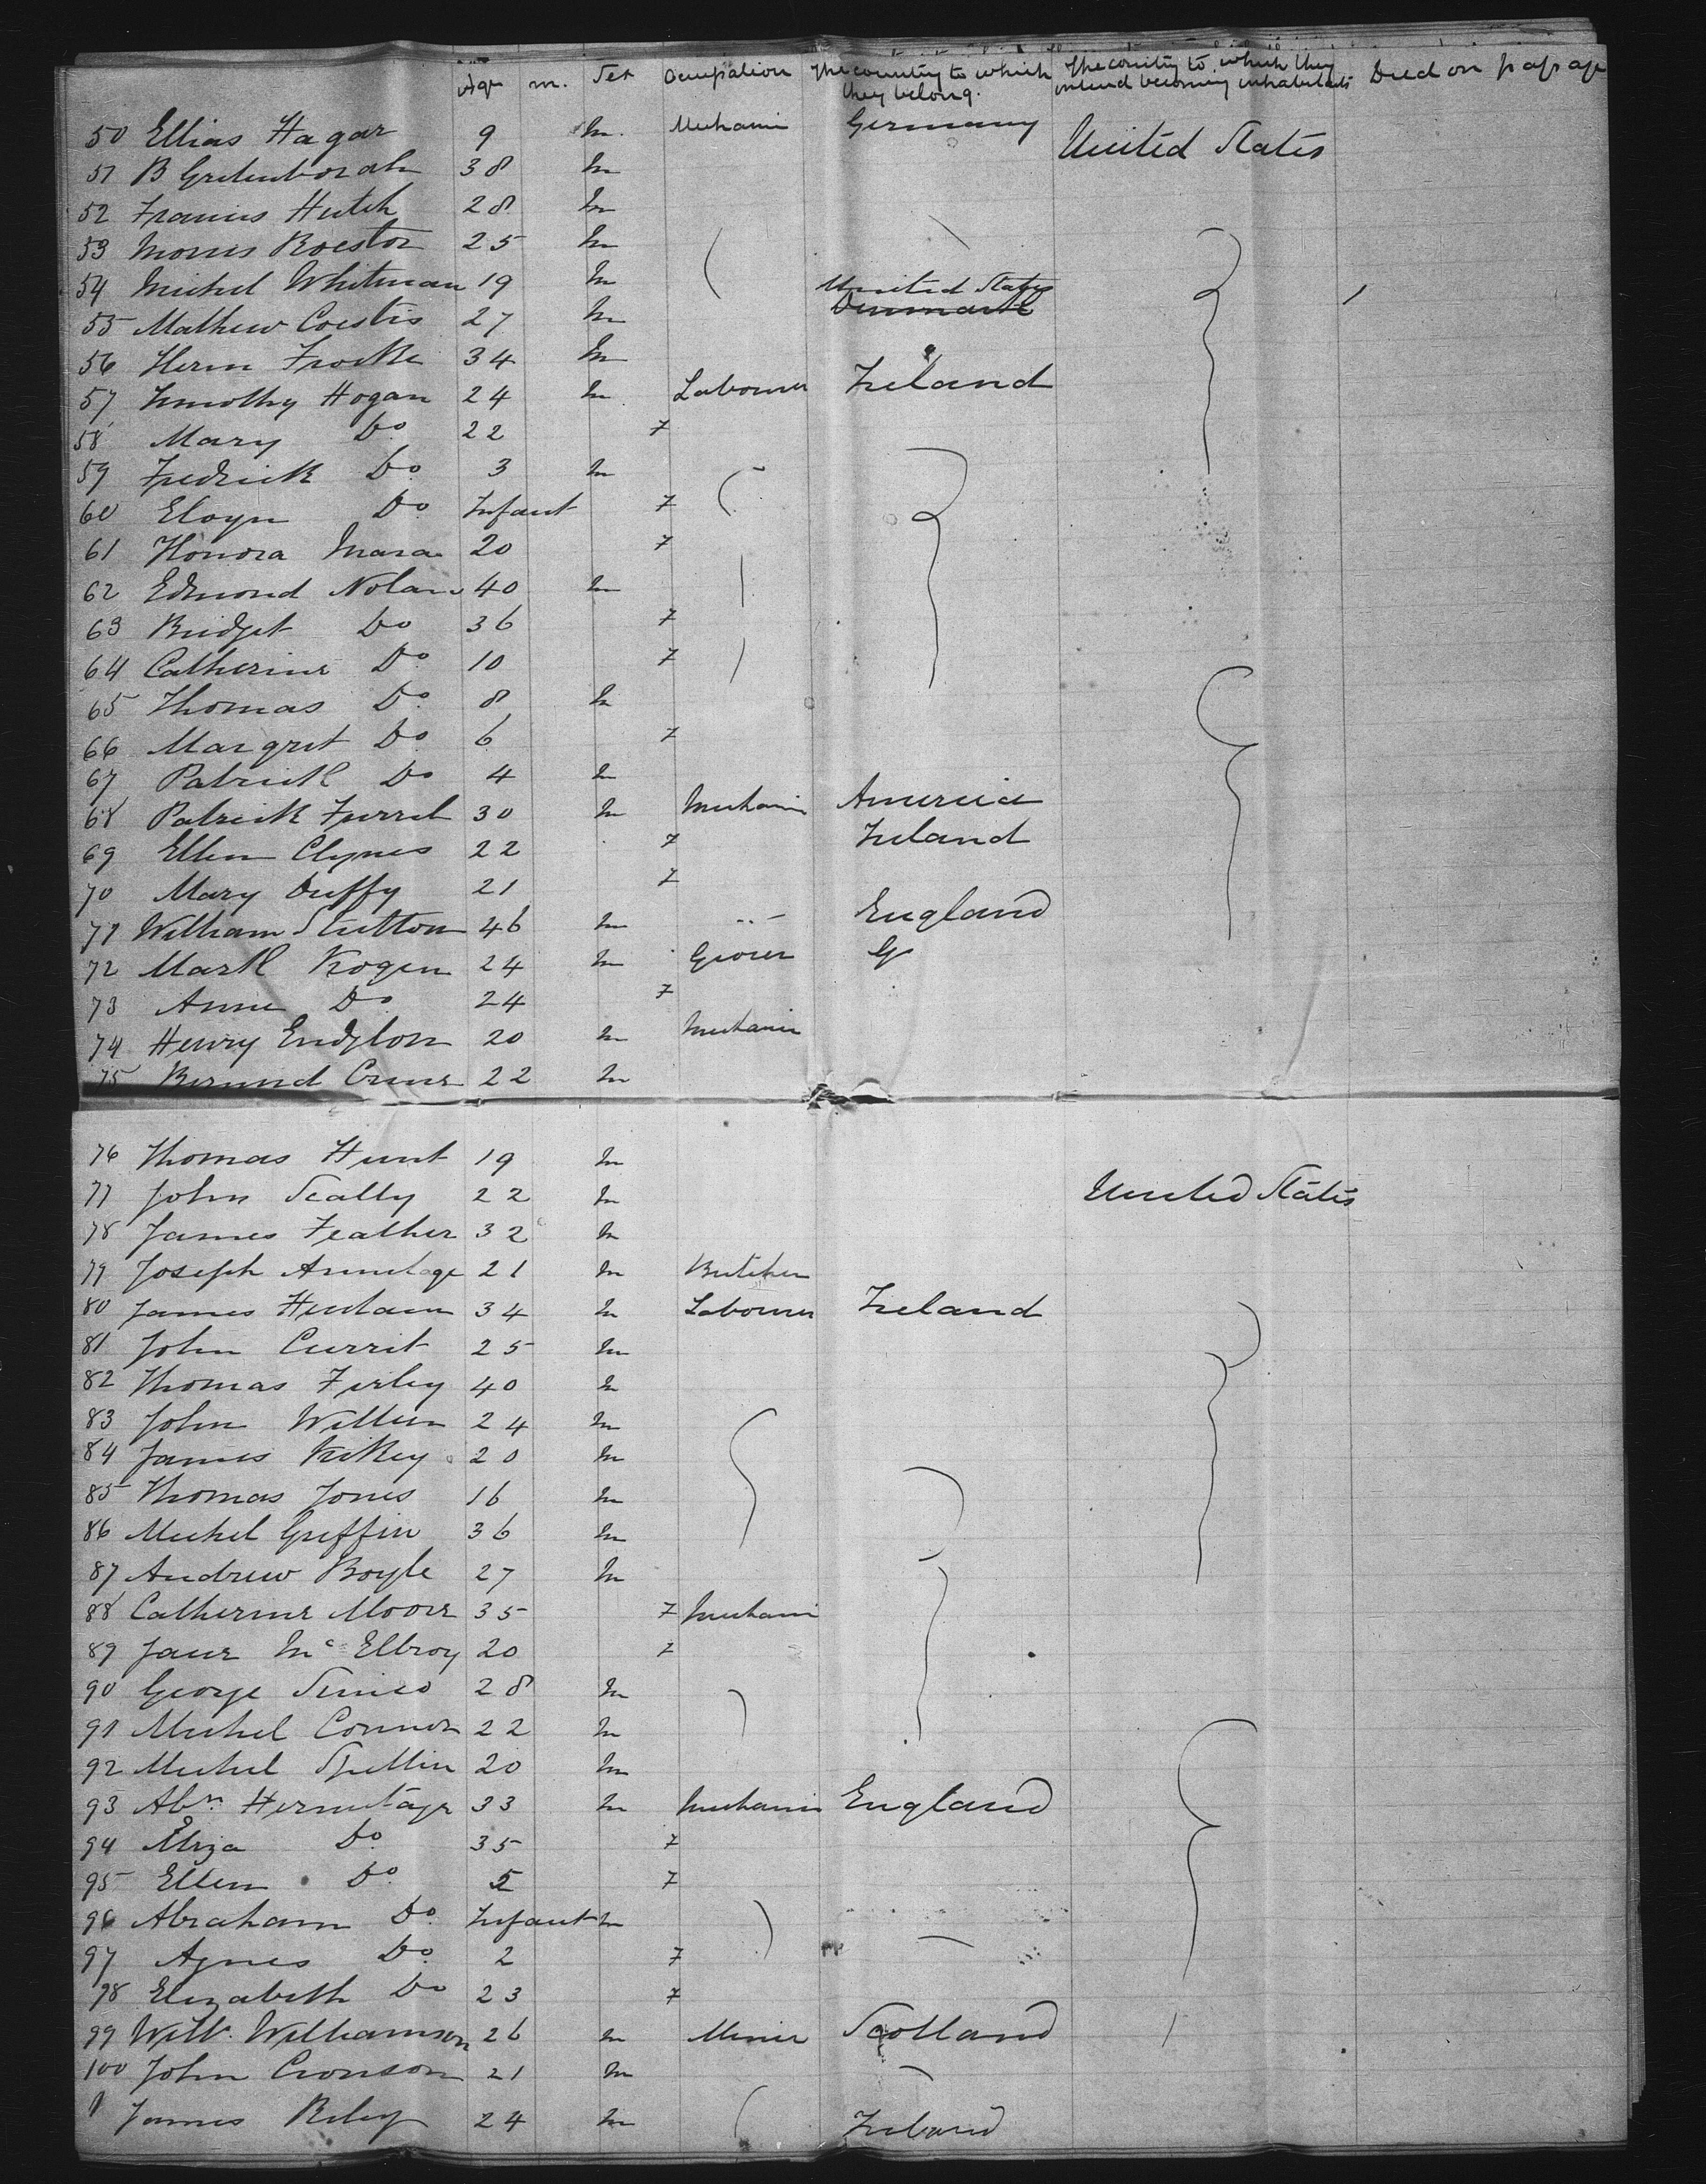 Age m. Sex Occupation The country to which they belong. The country to which they intend becoming inhabitants Died on passage
50 Ellias Hagar 9 m. Mechanic Germany United States
51 B Gretenborah 38 m
52 Francis Hutch 28 m
53 Morris Roestor 25 m
54 Michel Whitman 19 m United States
55 Mathew Coestis 27 m Denmark
56 Herm Frocke 34 m
57 Timothy Hogan 24 m Labourer Ireland
58 Mary Do 22 F
59 Fredrick Do 3 m
60 Eloyn Do Infant F
61 Honora Mara 20 F
62 Edmond Nolan 40 m
63 Bridget Do 36 F
64 Catherine Do 10 F
65 Thomas Do 8 m
66 Margret Do 6 F
67 Patrick Do 4 m
68 Patrick Furrel 30 m Mechanic America
69 Ellen Clynes 22 F Ireland
70 Mary Duffy 21 F
71 William Stutton 46 m England
72 Mark Kogen 24 m Grocer G
73 Anne Do 24 F
74 Henry Endglon 20 m Mechanic
75 Bernnd Crune 22 m
76 Thomas Hunt 19 m
77 John Scally 22 m United States
78 James Feather 32 m
79 Joseph Armitage 21 m Butcher
80 James Heulam 34 m Labourer Ireland
81 John Currit 25 m
82 Thomas Firley 40 m
83 John Willun 24 m
84 James Kikey 20 m
85 Thomas Jones 16 m
86 Michel Griffin 36 m
87 Andrew Boyle 27 m
88 Catherine Moore 35 F Mechani
89 Jane McElbroy 20 F
90 George Simes 28 m
91 Michel Connor 22 m
92 Michel Spillin 20 m
93 Abm Hermitage 33 m Mechanic England
94 Eliza Do 35 F
95 Ellen Do 5 F
96 Abraham Do Infant m
97 Agnes Do 2 F
98 Elizabeth Do 23 F
99 Willm Williamson 26 m Miner Scotland
100 John Cronson 21 m
1 James Riley 24 m Ireland